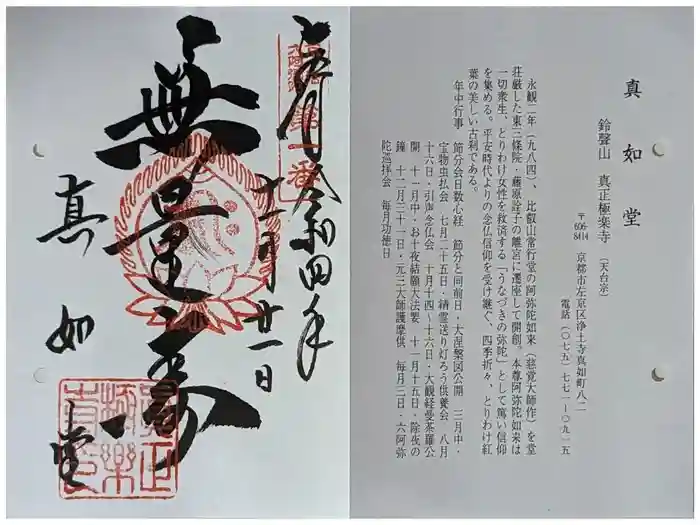 奉拝 令和四年
十一月廿一日
無量壽
真如堂
真正極楽寺
真如堂
鈴聲山 真正極楽寺 (天台宗)
〒606-8414 京都市左京区浄土寺真如町八二
電話(〇七五)七七一-〇九一五
永観二年(九八四)、比叡山常行堂の阿弥陀如来(慈覚大師作)を東
荘厳した東三條院・藤原詮子の離宮に遷座して開創。本尊阿弥陀如来は
一切衆生、とりわけ女性を救済する「うなづきの弥陀」として篤い信仰
を集める。平安時代よりの念仏信仰を受け継ぐ、四季折々、とりわけ紅
葉の美しい古刹である。
年中行事 節分会日数心経 節分と同前日・大涅槃図公開 三月中・
宝物虫払会 七月二十五日・精霊送り灯ろう供養会 八月
十六日・引声念仏会 十月十四~十六日・大観経曼荼羅公
開 十一月中・お十夜結願大法要 十一月十五日・除夜の
鐘 十二月三十一日・元三大師護摩供 毎月三日・六阿弥
陀巡拝会 毎月功徳日